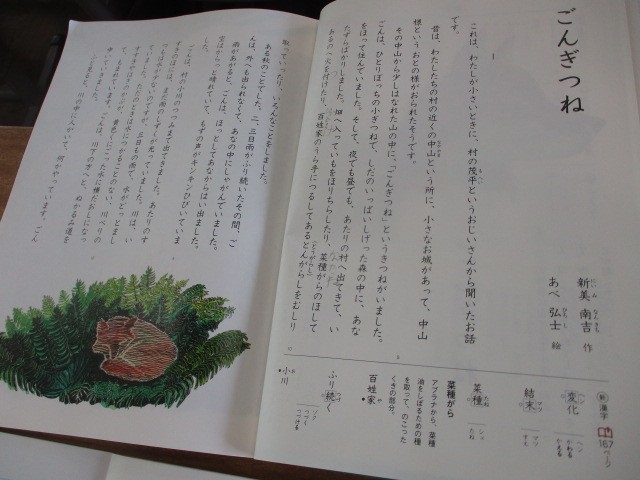 ごんぎつね
新美 南吉 作
あべ 弘士 絵
1
これは、わたしが小さいときに、村の茂平というおじいさんから聞いたお話
です。
昔は、わたしたちの村の近くの中山という所に、小さなお城があって、中山
様というおとの様がおられたそうです。
その中山から少しはなれた山の中に、「ごんぎつね」というきつねがいました。
ごんは、ひとりぼっちの小ぎつねで、しだのいっぱいしげった森の中に、あな
をほって住んでいました。そして、夜でも昼でも、あたりの村へ出てきて、い
たずらばかりしました。畑へ入っていもをほりちらしたり、菜種がらのほして
あるのへ火を付けたり、百姓家のうら手につるしてあるとんがらしをむしり
取っていったり、いろんなことをしました。
ある秋のことでした。二、三日雨がふり続いたその間、ご
んは、外へも出られなくて、あなの中にしゃがんでいました。
雨があがると、ごんは、ほっとしてあなからはい出ました。
空はからっと晴れていて、もずの声がキンキンひびいていま
した。
ごんは、村の小川のつつみまで出てきました。あたりのす
すきのほには、まだ雨のしずくが光っていました。川は、い
つもは水が少ないのですが、三日もの雨で、水がどっとまし
ていました。ただのときは水につかることのない、川べりの
すすきやはぎのかぶが、黄色くにごった水に横だおしになっ
て、もまれています。ごんは、川下の方へと、ぬかるみ道を
歩いていきました。
ふと見ると、川の中に人がいて、何かやっています。ごん
新 漢字 167ページ
変化 ヘン かわる かえる
結末 ケツ マツ すえ
菜種 たね シュ たね
菜種がら
アブラナから、菜種
油をしぼるための種
を取って、のこった
くきの部分。
百姓家
ふり続く ゾク つづく つづける
小川